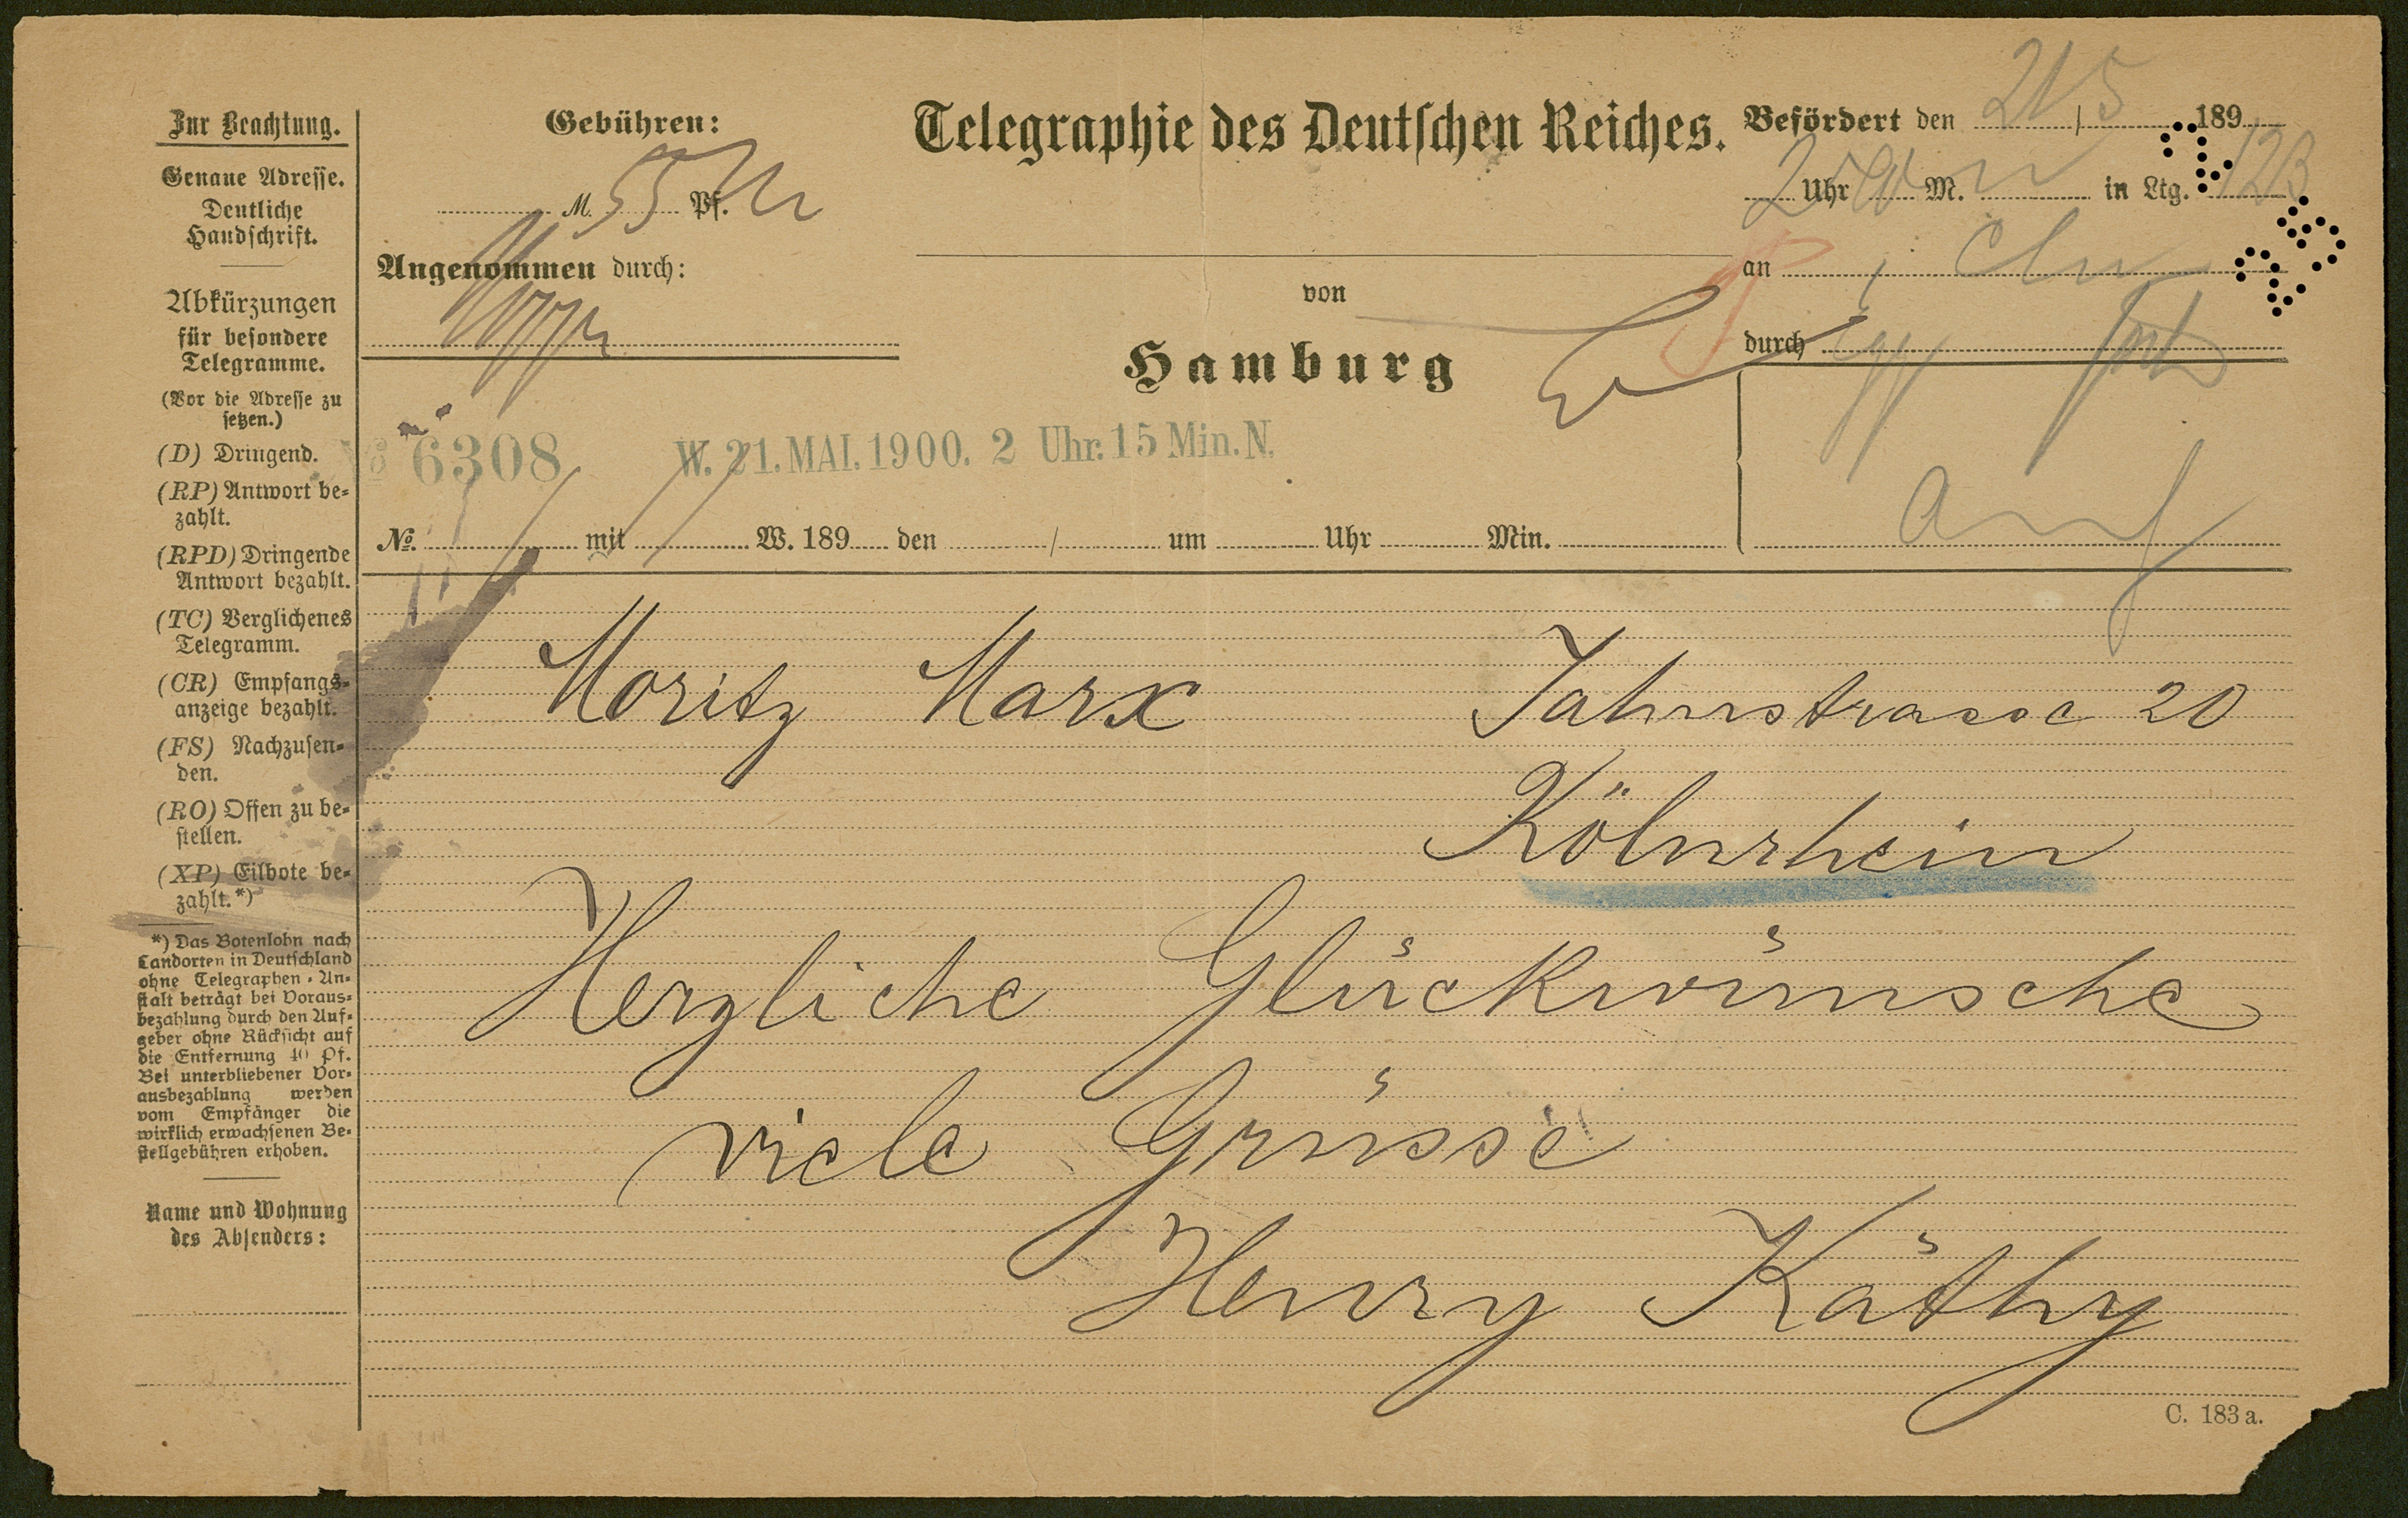 Zur Beachtung.
Genaue Adresse.
Deutliche
Handschrift.
Abkürzungen
für besondere
Telegramme.
(Vor die Adresse zu
setzen.)
(D) Dringend.
(RP) Antwort be-
zahlt.
(RPD) Dringende
Antwort bezahlt.
(TC) Verglichenes
Telegramm.
(CR) Empfangs-
anzeige bezahlt.
(FS) Nachzusen-
den.
(RO) Offen zu be-
stellen.
(XP) Eilbote be-
zahlt.*)
*) Das Botenlohn nach
Landorten in Deutschland
ohne Telegraphen-An-
stalt beträgt bei Voraus-
bezahlung durch den Auf-
geber ohne Rücksicht auf
die Entfernung 40 Pf.
Bei unterbliebener Vor-
ausbezahlung werden
vom Empfänger die
wirklich erwachsenen Be-
stellgebühren erhoben.
Name und Wohnung
des Absenders:
Gebühren:
M. 55 Pf.
Angenommen durch:
Telegraphie des Deutschen Reiches.
von
Hamburg
Befördert den 21/5 189
2 Uhr M. in Ltg.
an
durch
No 6308 W. 21. MAI. 1900. 2 Uhr. 15 Min. N.
No. mit W. 189 den / um Uhr Min.
Moritz Marx Jahnstrasse 20
Kölnrhein
Herzliche Glückwünsche
viele Grüsse
Henry Käthy
C. 183 a.